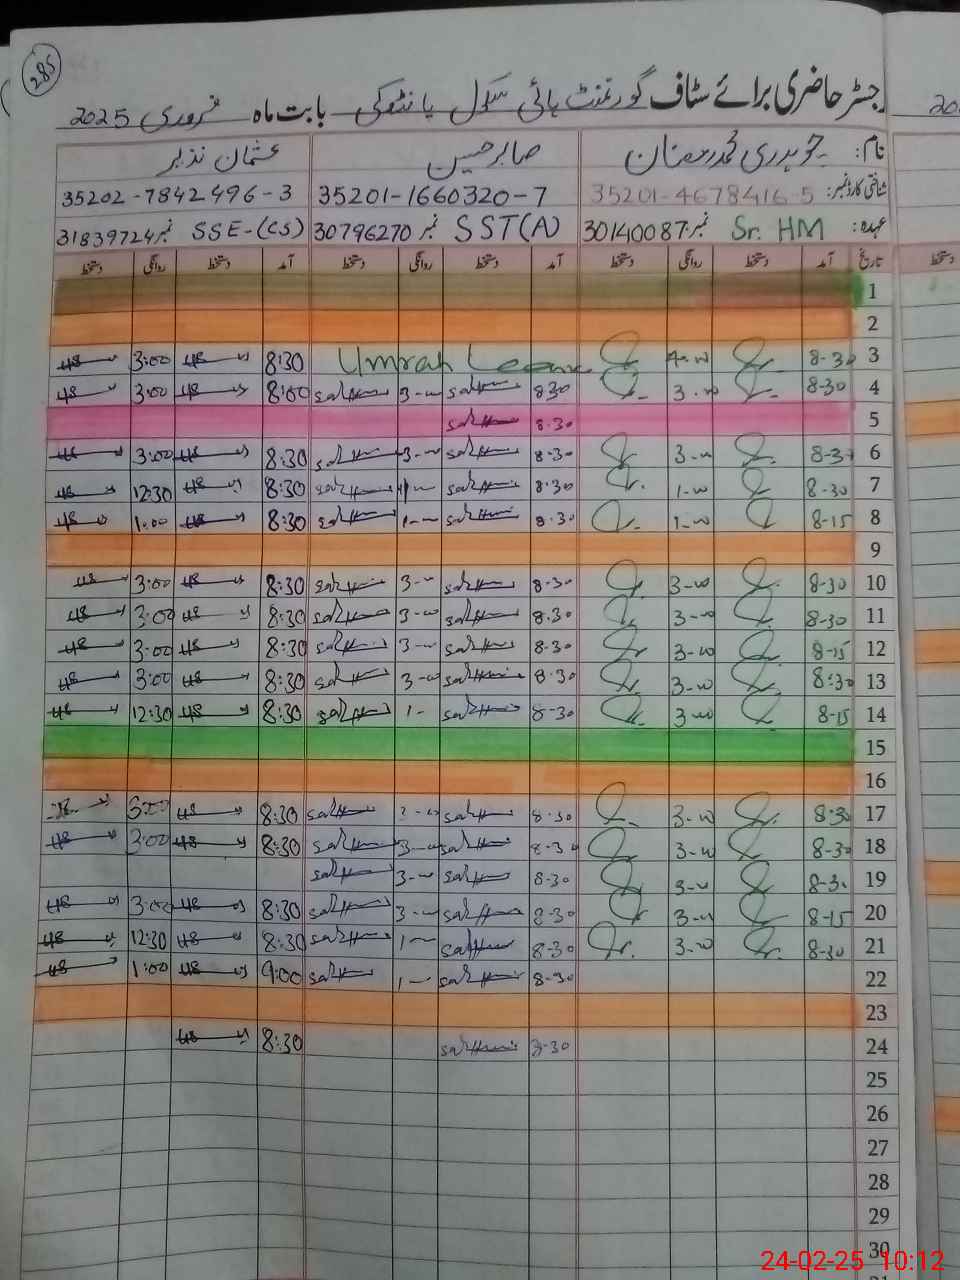 285
رجسٹر حاضری برائے سٹاف گورنمنٹ ہائی سکول پانڈوکی بابت ماہ فروری 2025
نام: چوہدری محمد رمضان صابر حسین عثمان نذیر
شناختی کارڈ نمبر: 35201-4678416-5 35201-1660320-7 35202-7842496-3
عہدہ: Sr. HM نمبر 30140087 SST(A) نمبر 30796270 SSE-(CS) نمبر 31839724
تاریخ آمد دستخط روانگی دستخط آمد دستخط روانگی دستخط آمد دستخط روانگی دستخط دستخط
1
2
3 8-30 Umrah Leave 8:30 3:00
4 8-30 3-00 8:30 3-00 8:00 3:00
5 8-30
6 8-30 3-00 8-30 3-00 8:30 3:00
7 8-30 1-00 8-30 8:30 12:30
8 8-15 1-00 8-30 1-00 8:30 1:00
9
10 8-30 3-00 8-30 3-00 8:30 3:00
11 8-30 3-00 8-30 3-00 8:30 3:00
12 8-15 3-00 8-30 3-00 8:30 3:00
13 8-30 3-00 8-30 3-00 8:30 3:00
14 8-15 3-00 8-30 1- 8:30 12:30
15
16
17 8-30 3-00 8-30 3-00 8:30 3:00
18 8-30 3-00 8-30 3-00 8:30 3:00
19 8-30 3-00 8-30 3-00
20 8-15 3-00 8-30 3-00 8:30 3:00
21 8-30 3-00 8-30 1-00 8:30 12:30
22 8-30 1-00 9:00 1:00
23
24 8-30 8:30
25
26
27
28
29
30
24-02-25 10:12